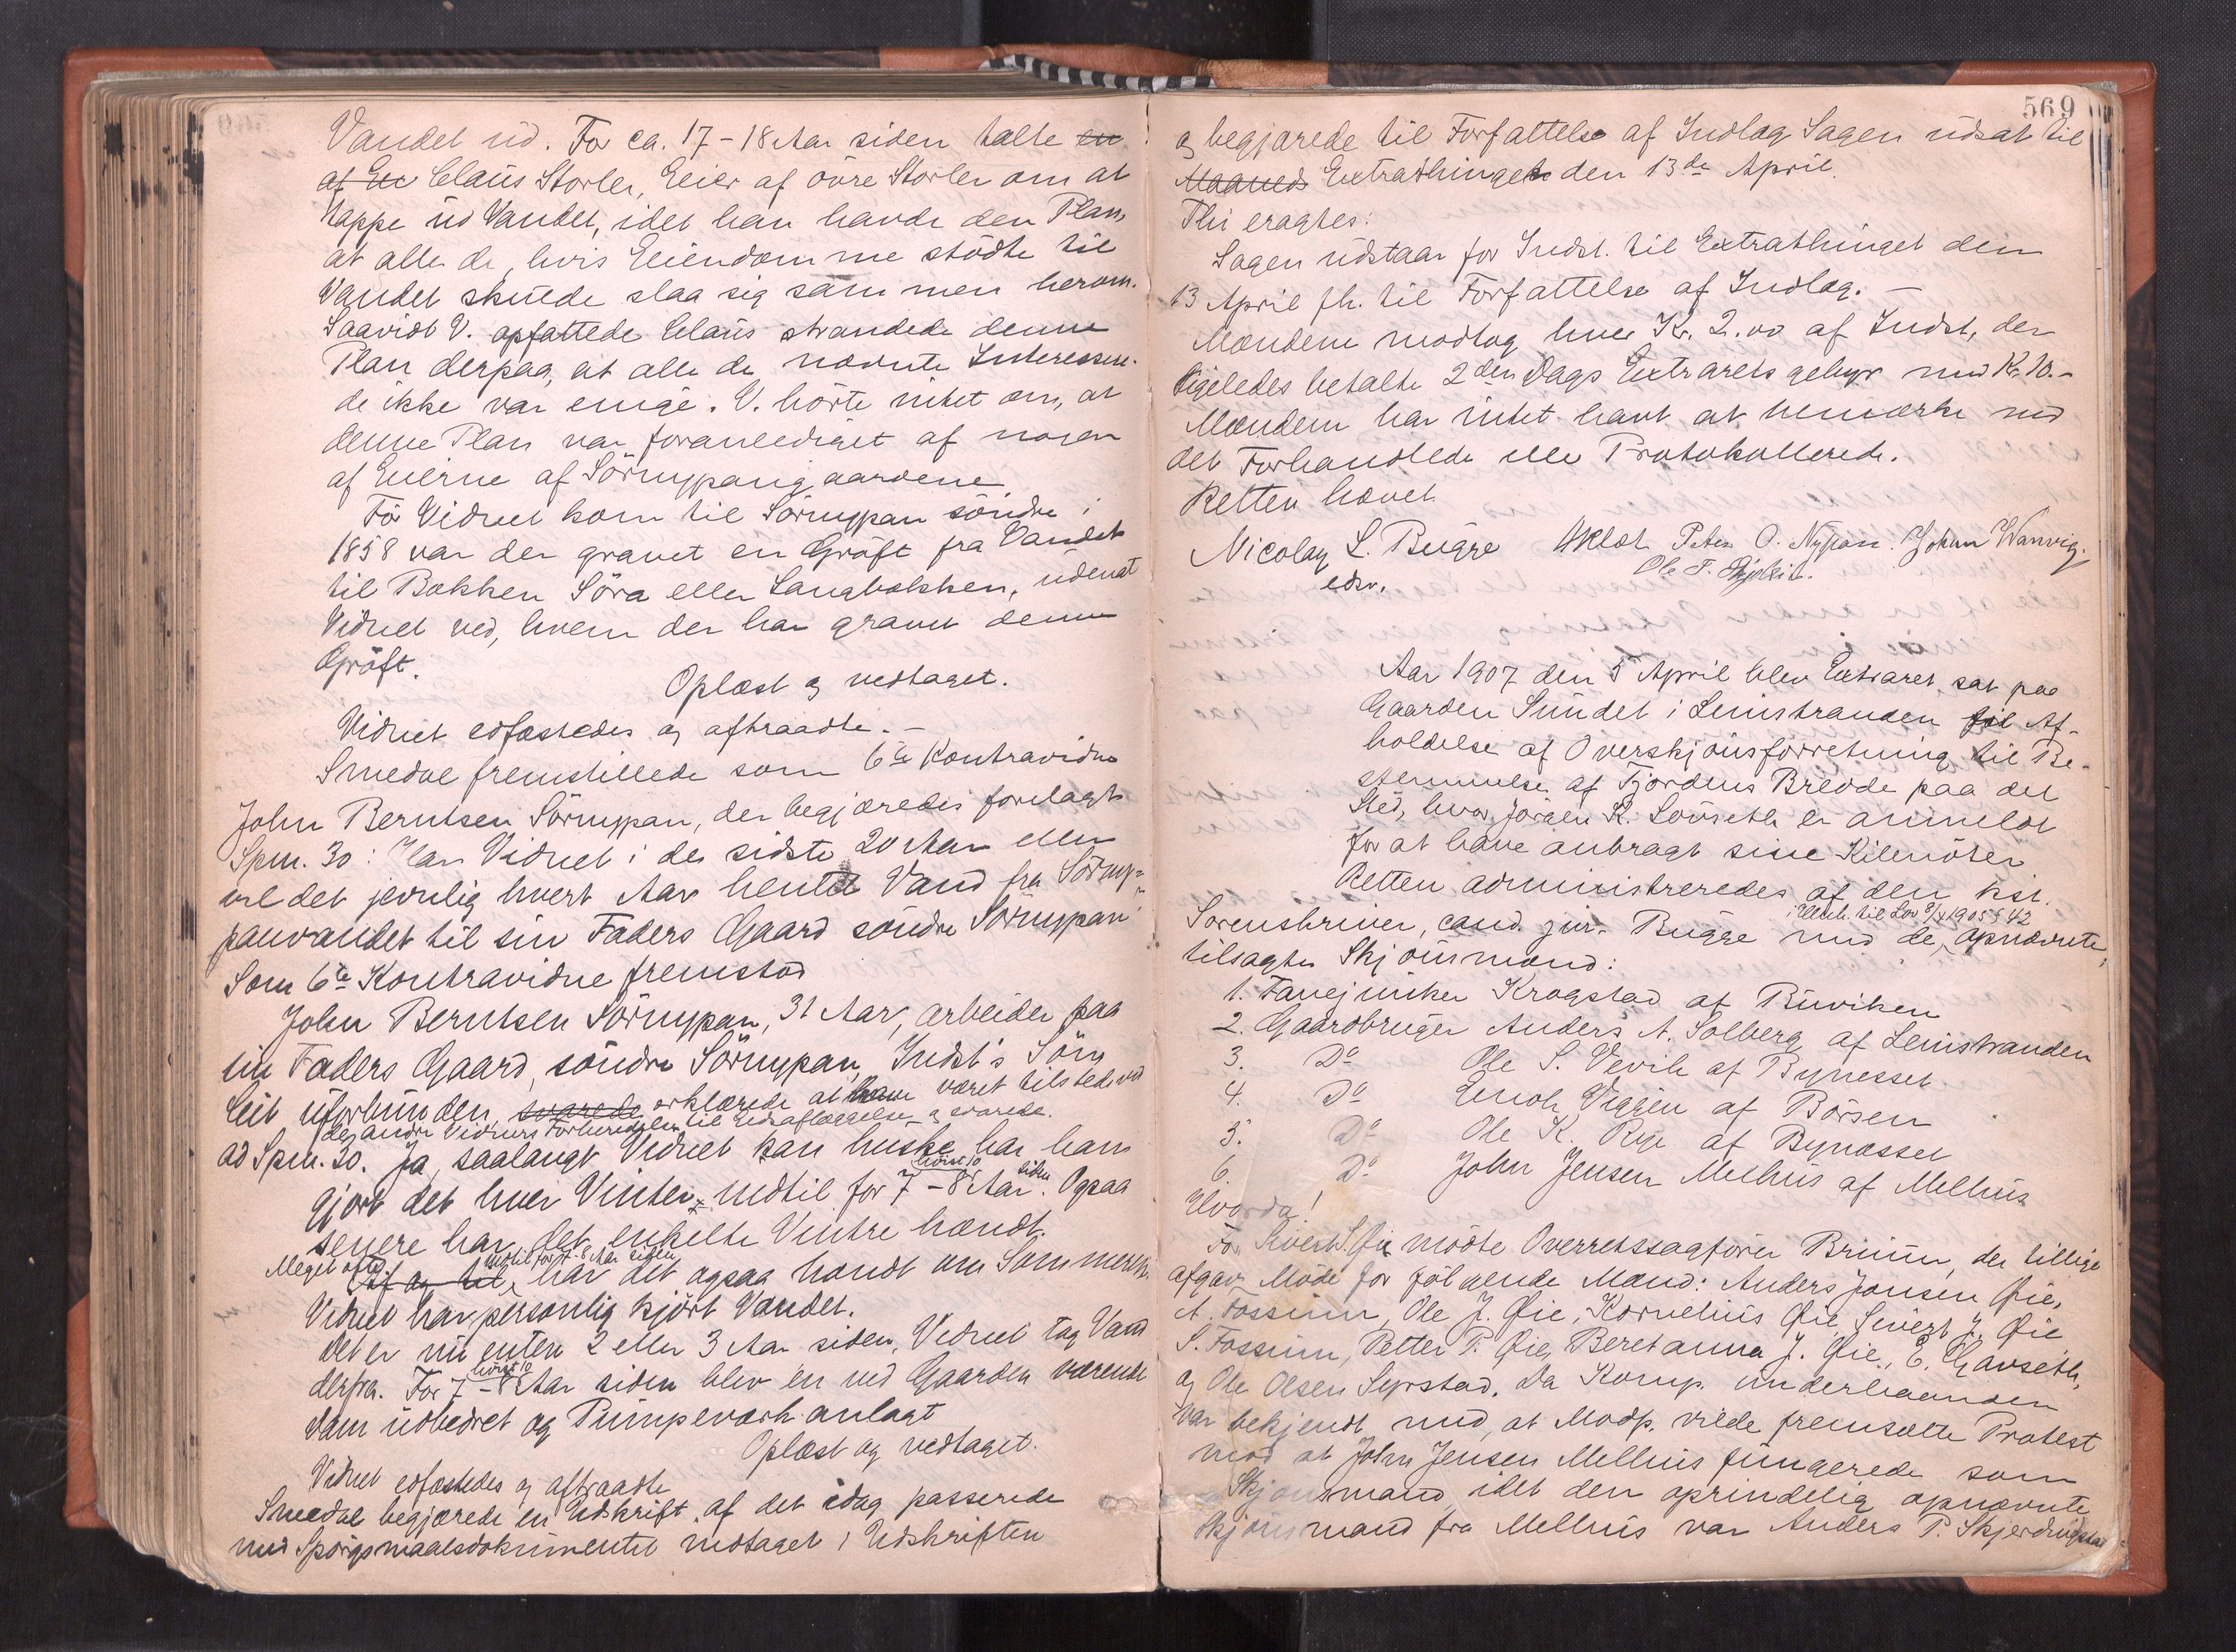 Vandet ud. For ca. 17-18 Aar siden talte en
af Ei Claus Storler, Eier af övre Storler om at
tappe ud Vandet, idet han havde den Plan,
at alle de, hvis Eiendomme stödte til
Vandet skulde slaa sig sammen herom.
Saavidt V. opfattede Claus strandede denne
Plan derpaa, at alle de nævnte Interessere-
de ikke var enige. V. hörte intet om, at
denne Plan var foranlediget af nogen
af Eierne af Sörnypangaardene.
För Vidnet kom til Sörnypan söndre i
1858 var der gravet en Gröft fra Vandet
til Bækken Söra eller Langbækken, udenat
Vidnet ved, hvem der har gravet denne
Gröft.
Oplæst og vedtaget.
Vidnet edfæstedes og aftraadte. -
Smedal fremstillede som 6te Kontravidne
John Berntsen Sörnypan, der begjæredes forelagt
Spm. 30: Har Vidnet i de sidste 20 Aar eller
vel det jevnlig hvert Aar hentet Vand fra Sörny-
panvandet til sin Faders Gaard söndre Sörnypan
Som 6te Kontravidne fremstod
John Berntsen Sörnypan, 31 Aar, arbeider paa
sin Faders Gaard, söndre Sörnypan, Indst's Sön
leit uforbunden, svarede erklærede at have været tilstede ved
de andre Vidners Forberedelse til Edsaflæggelse og svarede.
ad Spm. 30. Ja, saalangt Vidnet kan huske har han
gjort det hver Vinter indtil for 7-8 höist 10 Aar siden. Ogsaa
senere har det enkelte Vintre hændt.
Meget ofte Af og til, indtil for 7-8 Aar siden, har det ogsaa hændt om Sommeren.
Vidnet har personlig kjört Vandet.
Det er nu enten 2 eller 3 Aar siden, Vidnet tog Vand
derfra. For 7-8 höist 10 Aar siden blev en ved Gaarden værende
Dam udbedret og Pumpeværk anlagt
Oplæst og vedtaget.
Vidnet edfæstedes og aftraadte
Smedal begjærede en Udskrift af det idag passerede
med Spörgsmaalsdokumentet indtaget i Udskriften
569
og begjærede til Forfattelse af Indlæg Sagen udsat til
Maaneds Extrathinget den 13de April.
Thi eragtes:
Sagen udstaar for Indst. til Extrathinget den
13 April fh. til Forfattelse af Indlæg. -
Mændene modtog hver Kr. 2.00 af Indst, der
ligeledes betalte 2den Dags Extraretsgebyr med Kr. 10.-
Mændene har intet havt at bemærke ved
det Forhandlede eller Protokollerede.
Retten hævet
Nicolay L. Bugge Peter O. Nypan. Johan Wanvig.
edsv. Ole T.
Aar 1907 den 5 April blev Extraret sat paa
Gaarden Sundet i Leinstranden til Af-
holdelse af Overskjönsforretning til Be-
stemmelse af Fjordens Bredde paa det
Sted, hvor Jörgen K. Lövseth er anmeldt
for at have anbragt sine Kilenöter
Retten administreredes af den kst.
Sorenskriver, cand. jur. Bugge med de, i Henh. til Lov 9/6 1905 § 42 opnævnte,
tilsagte Skjönsmænd:
1. Fanejunker Krogstad af Buviken
2. Gaardbruger Anders A. Solberg af Leinstranden
3. Do Ole S. Vevik af Bynesset
4. Do Enok Viggen af Börsen
5. Do Ole K. Rye af Bynæsset
6. Do John Jensen Melhus af Melhus
Hvorda!
For Sivert Øie mödte Overretssagförer Bruun, der tillige
afgav Möde for fölgende Mænd: Anders Jonsen Øie,
A. Fossum, Ole J. Øie, Kornelius Øie, Sivert J. Øie
S. Fossum, Petter P. Øie, Beretanna J. Øie, E. Gavseth,
og Ole Olsen Syrstad. Da Komp. underhaanden
var bekjendt med, at Modp. vilde fremsætte Protest
mod at John Jensen Melhus fungerede som
Skjönsmand idet den oprindelig opnævnte
Skjönsmand fra Melhus var Anders P. Skjerdingstad